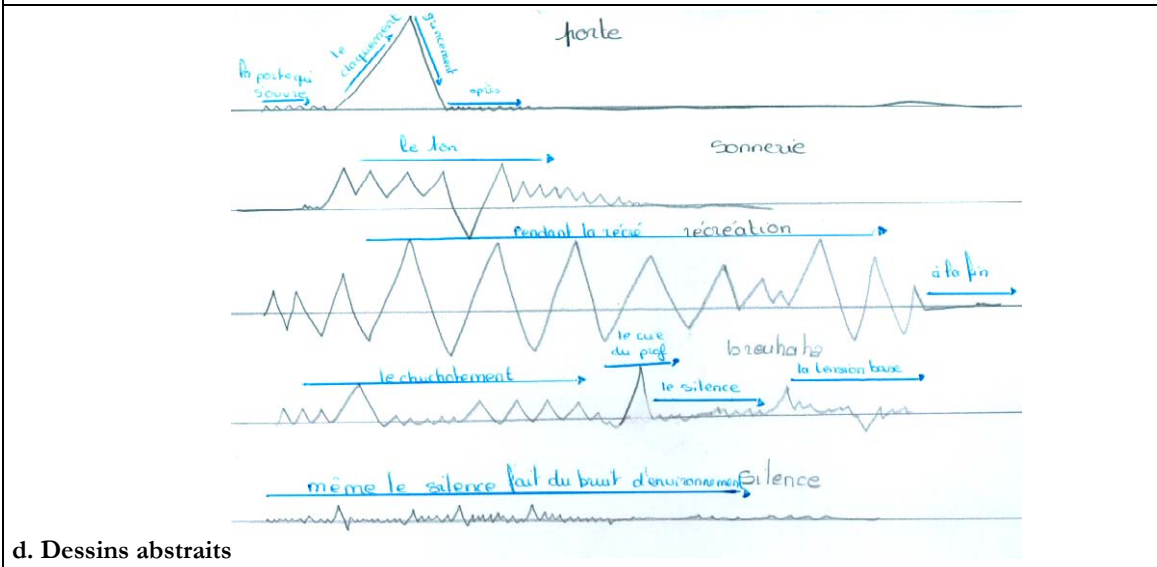 porte
la porte qui
s'ouvre
le
claquement
après
le ton
sonnerie
Pendant la récré
récréation
à la fin
le crie
du prof
brouhaha
le chuchotement
le silence
la tension base
même le silence fait du bruit d'environnement
Silence
d. Dessins abstraits